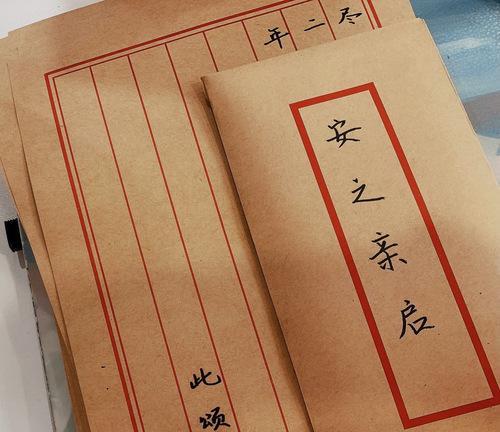 安之亲启
尽
二
年
此颂